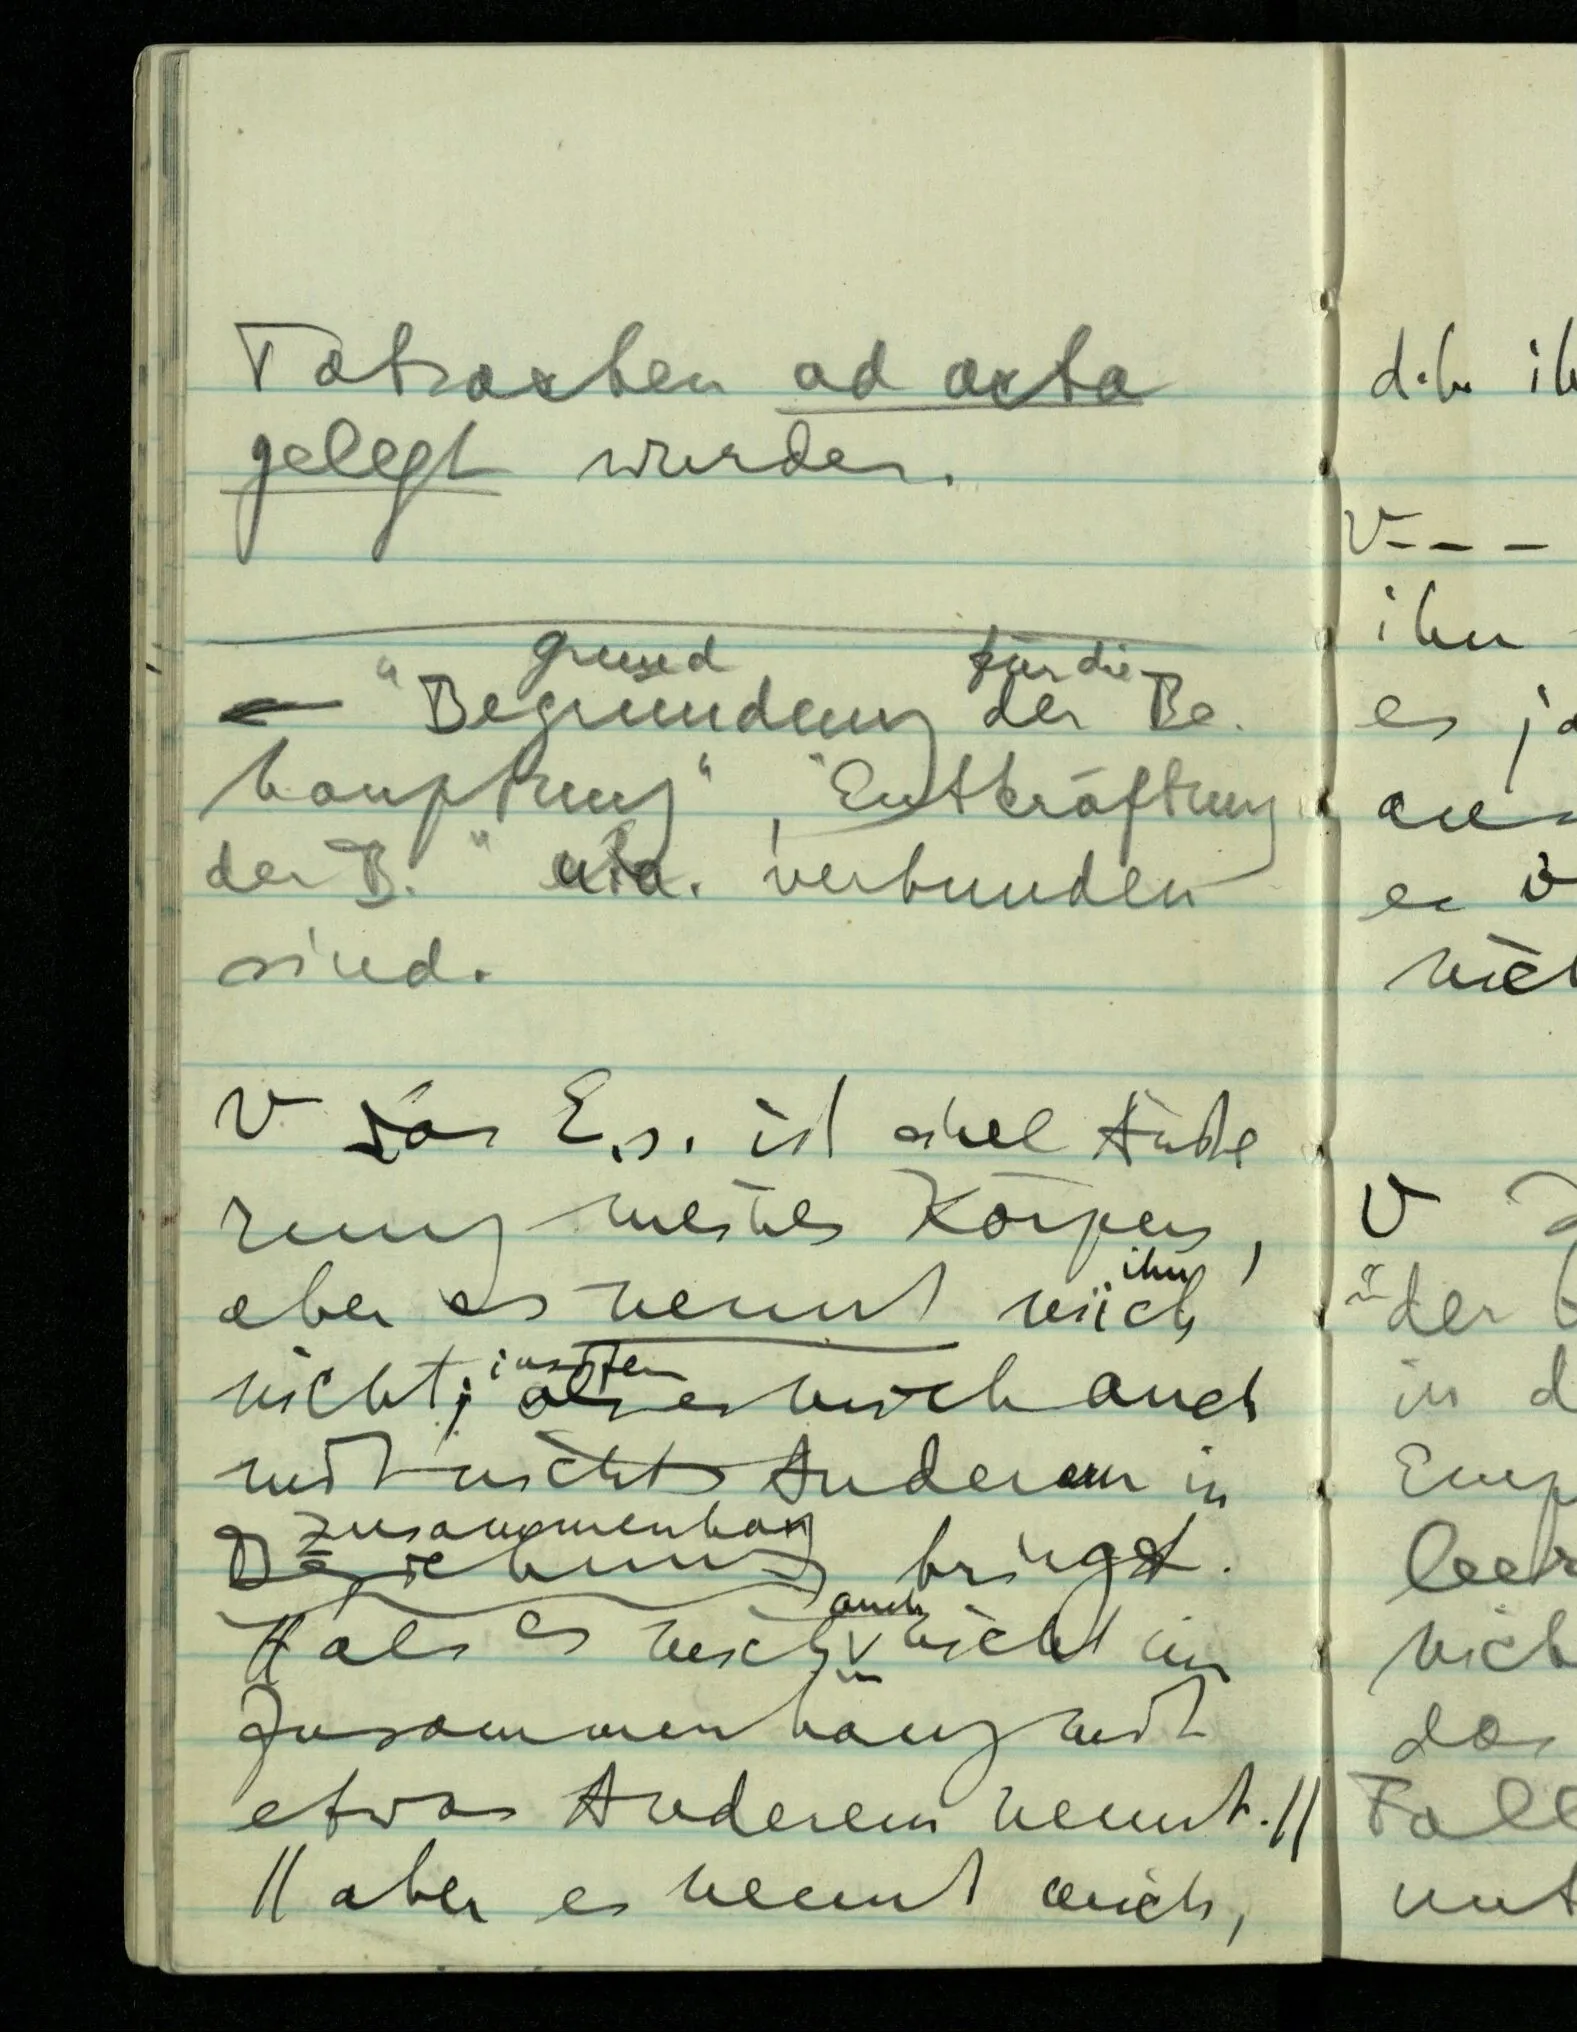 Tatsachen ad acta
gelegt wurden.
grund für die
— "Begründung der Be-
hauptung", "Entkräftung
der B." u.a. verbunden
sind.
V Das E.s. ist eine Äuße
rung meines Körpers,
ihn
aber es nennt mich
insofern
nicht; als es mich auch
mit nichts Anderem in
Zusammenhang
Beziehung bringt.
auch
// als es mich nicht im
Zusammenhang mit
etwas Anderem nennt. //
// aber es nennt mich,
d.h. ih
V - - -
ihn
es ja
aus
er
nich
V
der
in d
Emp
leer
nich
das
Fall